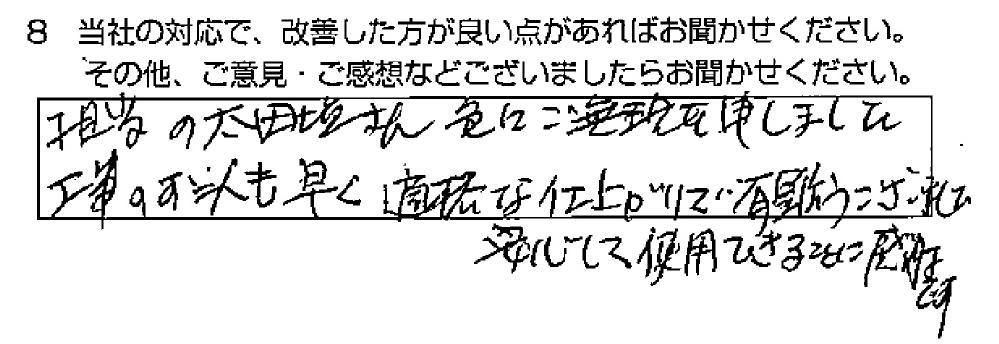 8 当社の対応で、改善した方が良い点があればお聞かせください。
その他、ご意見・ご感想などございましたらお聞かせください。
担当の太田垣さん 急にご無理を申しまして
工事の対応も早く 適確な仕上がりで有難うございました
安心して使用できることに感謝
です